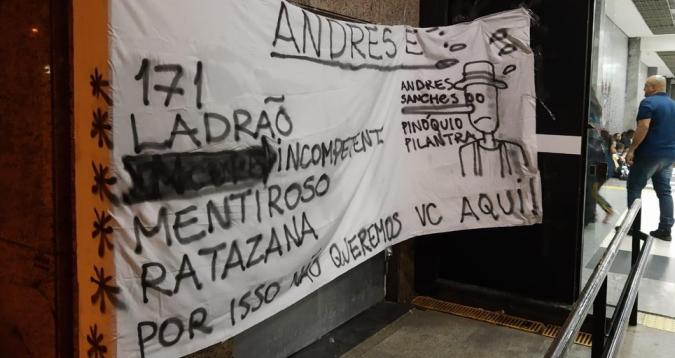 ANDRES E
171
LADRÃO
INCOMPETENT
MENTIROSO
RATAZANA
POR ISSO NÃO QUEREMOS VC AQUI!
ANDRES
SANCHES
PINÓQUIO
PILANTRA